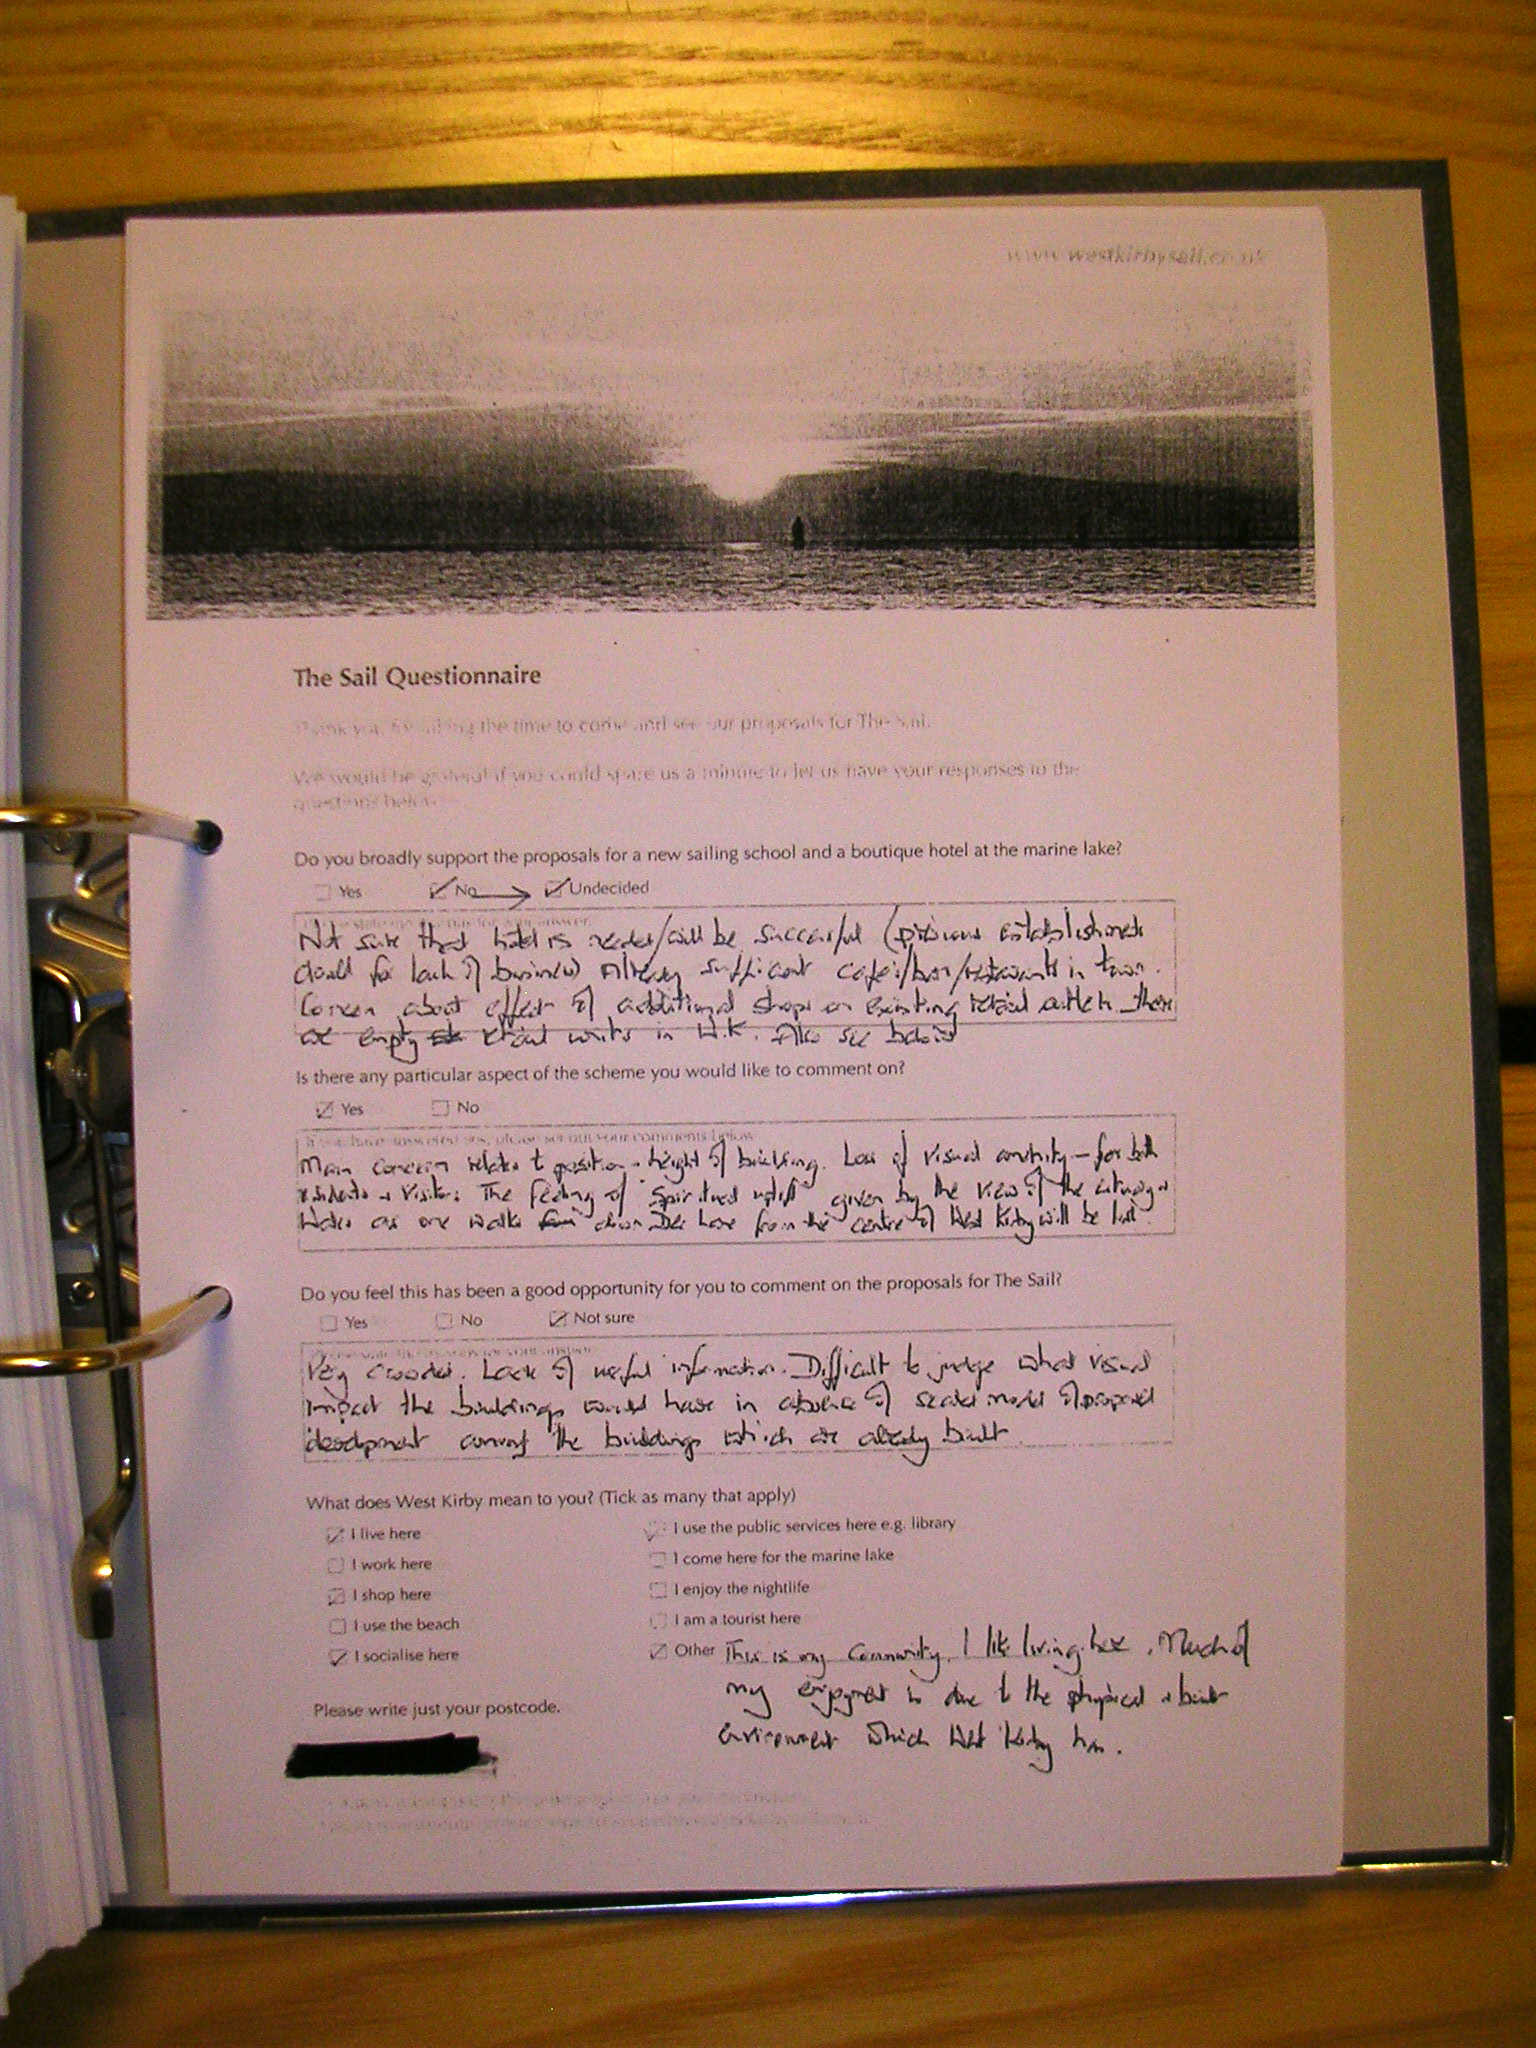 www.westkirbysail.co.uk
The Sail Questionnaire
Thank you for taking the time to come and see our proposals for The Sail.
We would be grateful if you could spare us a minute to let us have your responses to the
questions below
Do you broadly support the proposals for a new sailing school and a boutique hotel at the marine lake?
Yes No Undecided
Not sure that hotel is needed/will be successful (previous establishments
closed for lack of business) Already sufficient cafes/bars/restaurants in town.
Concern about effect of additional shops on existing retail outlets there
are empty retail units in W.K. Also see below
Is there any particular aspect of the scheme you would like to comment on?
Yes No
If you have answered yes, please set out your comments below
Main concern relates to position + height of building. Loss of visual amenity – for both
residents + visitors. The feeling of spiritual uplift given by the view of the estuary +
Wales as one walks down Dee Lane from the centre of West Kirby will be lost.
Do you feel this has been a good opportunity for you to comment on the proposals for The Sail?
Yes No Not sure
Very crowded. Lack of useful information. Difficult to judge what visual
impact the buildings would have in absence of scaled model of proposed
development among the buildings which are already built.
What does West Kirby mean to you? (Tick as many that apply)
I live here
I work here
I shop here
I use the beach
I socialise here
I use the public services here e.g. library
I come here for the marine lake
I enjoy the nightlife
I am a tourist here
Other This is my community. I like living here. Much of
my enjoyment is due to the physical + built
environment which West Kirby has.
Please write just your postcode.